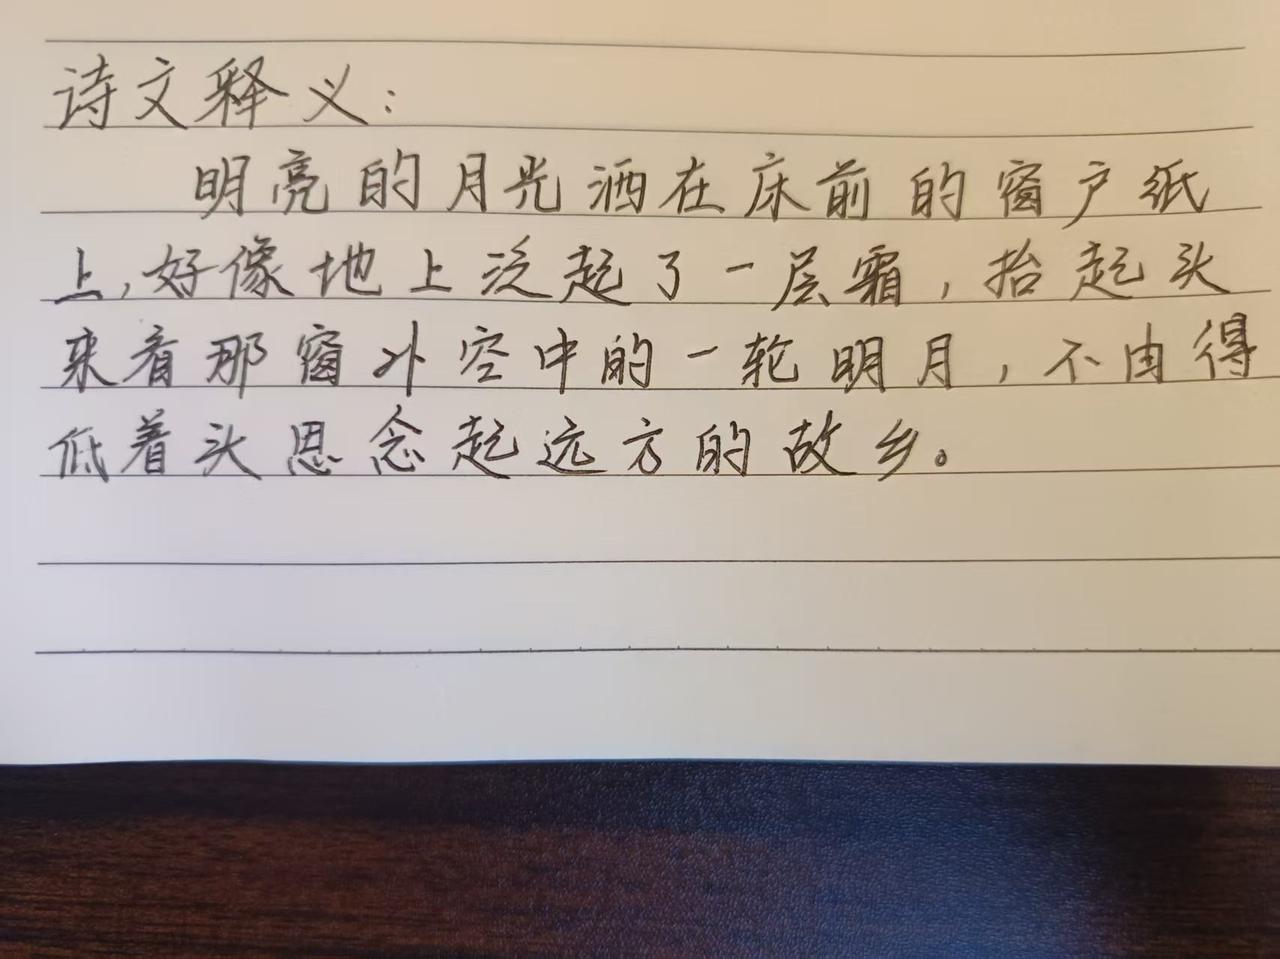 诗文释义：
明亮的月光洒在床前的窗户纸
上，好像地上泛起了一层霜，抬起头
来看那窗外空中的一轮明月，不由得
低着头思念起远方的故乡。